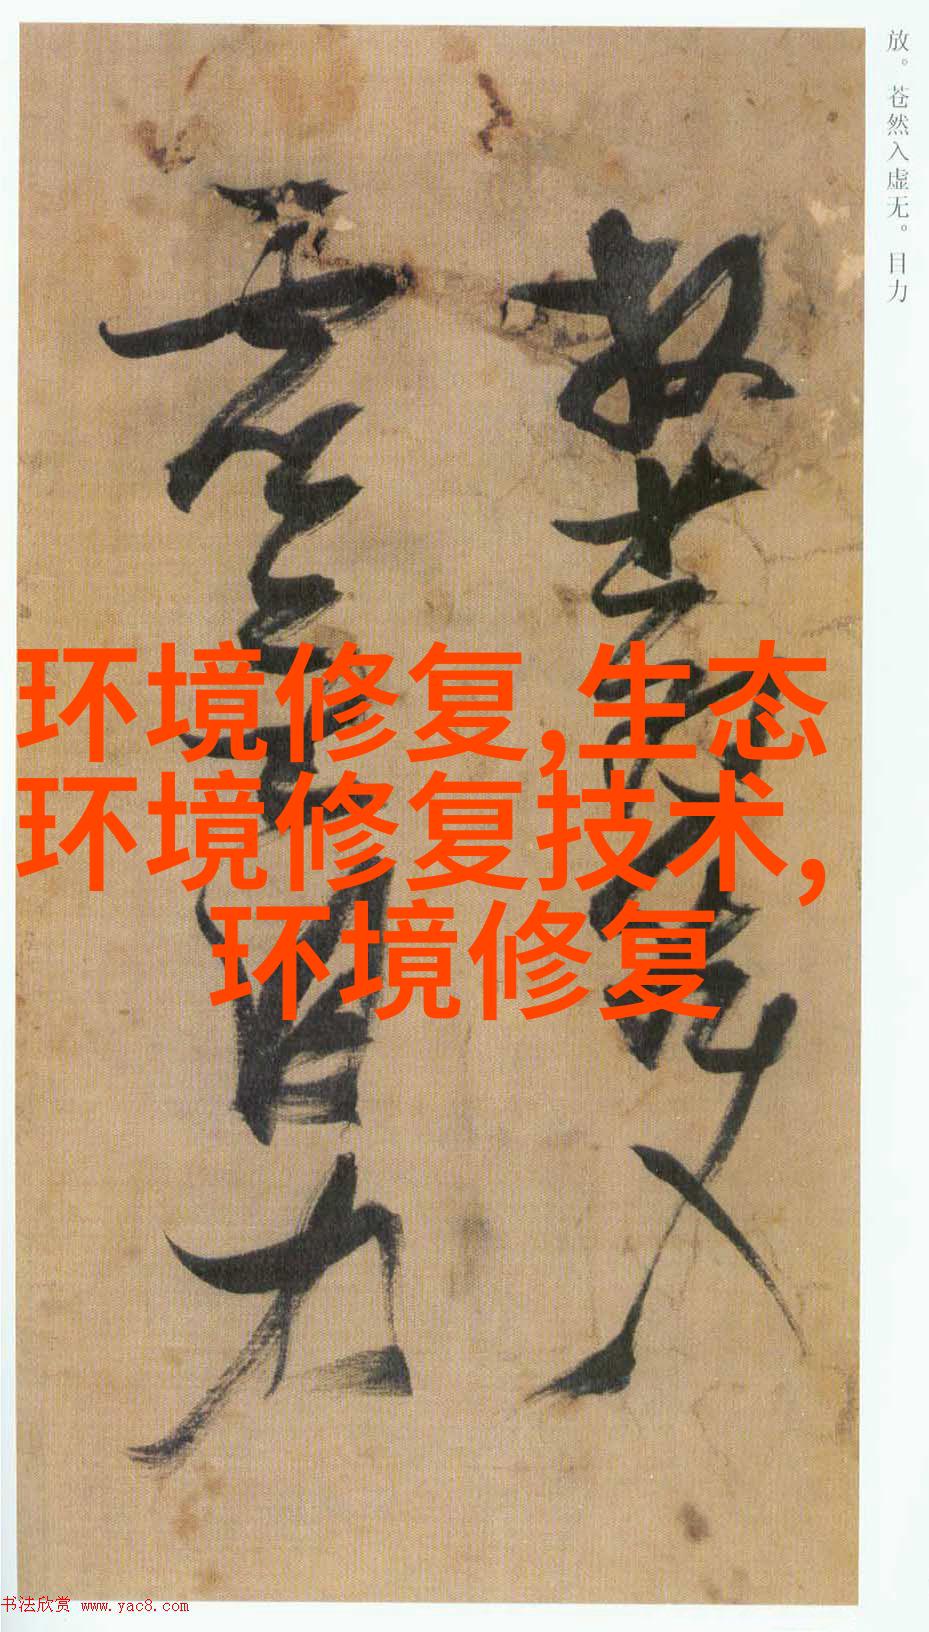 放。苍然入虚无。目力
放苍然入
虚无目力
环境修复,生态
环境修复技术,
环境修复
书法欣赏 www.yac8.com